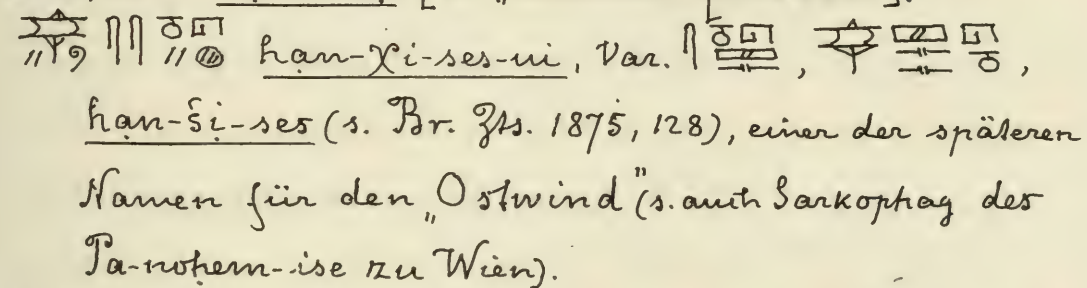 han-χi-ses-ui, Var.
ḥan-ši-ses (s. Br. Zts. 1875, 128), einer der späteren
Namen für den „Ostwind" (s. auch Sarkophag des
Pa-noḥem-ise zu Wien).